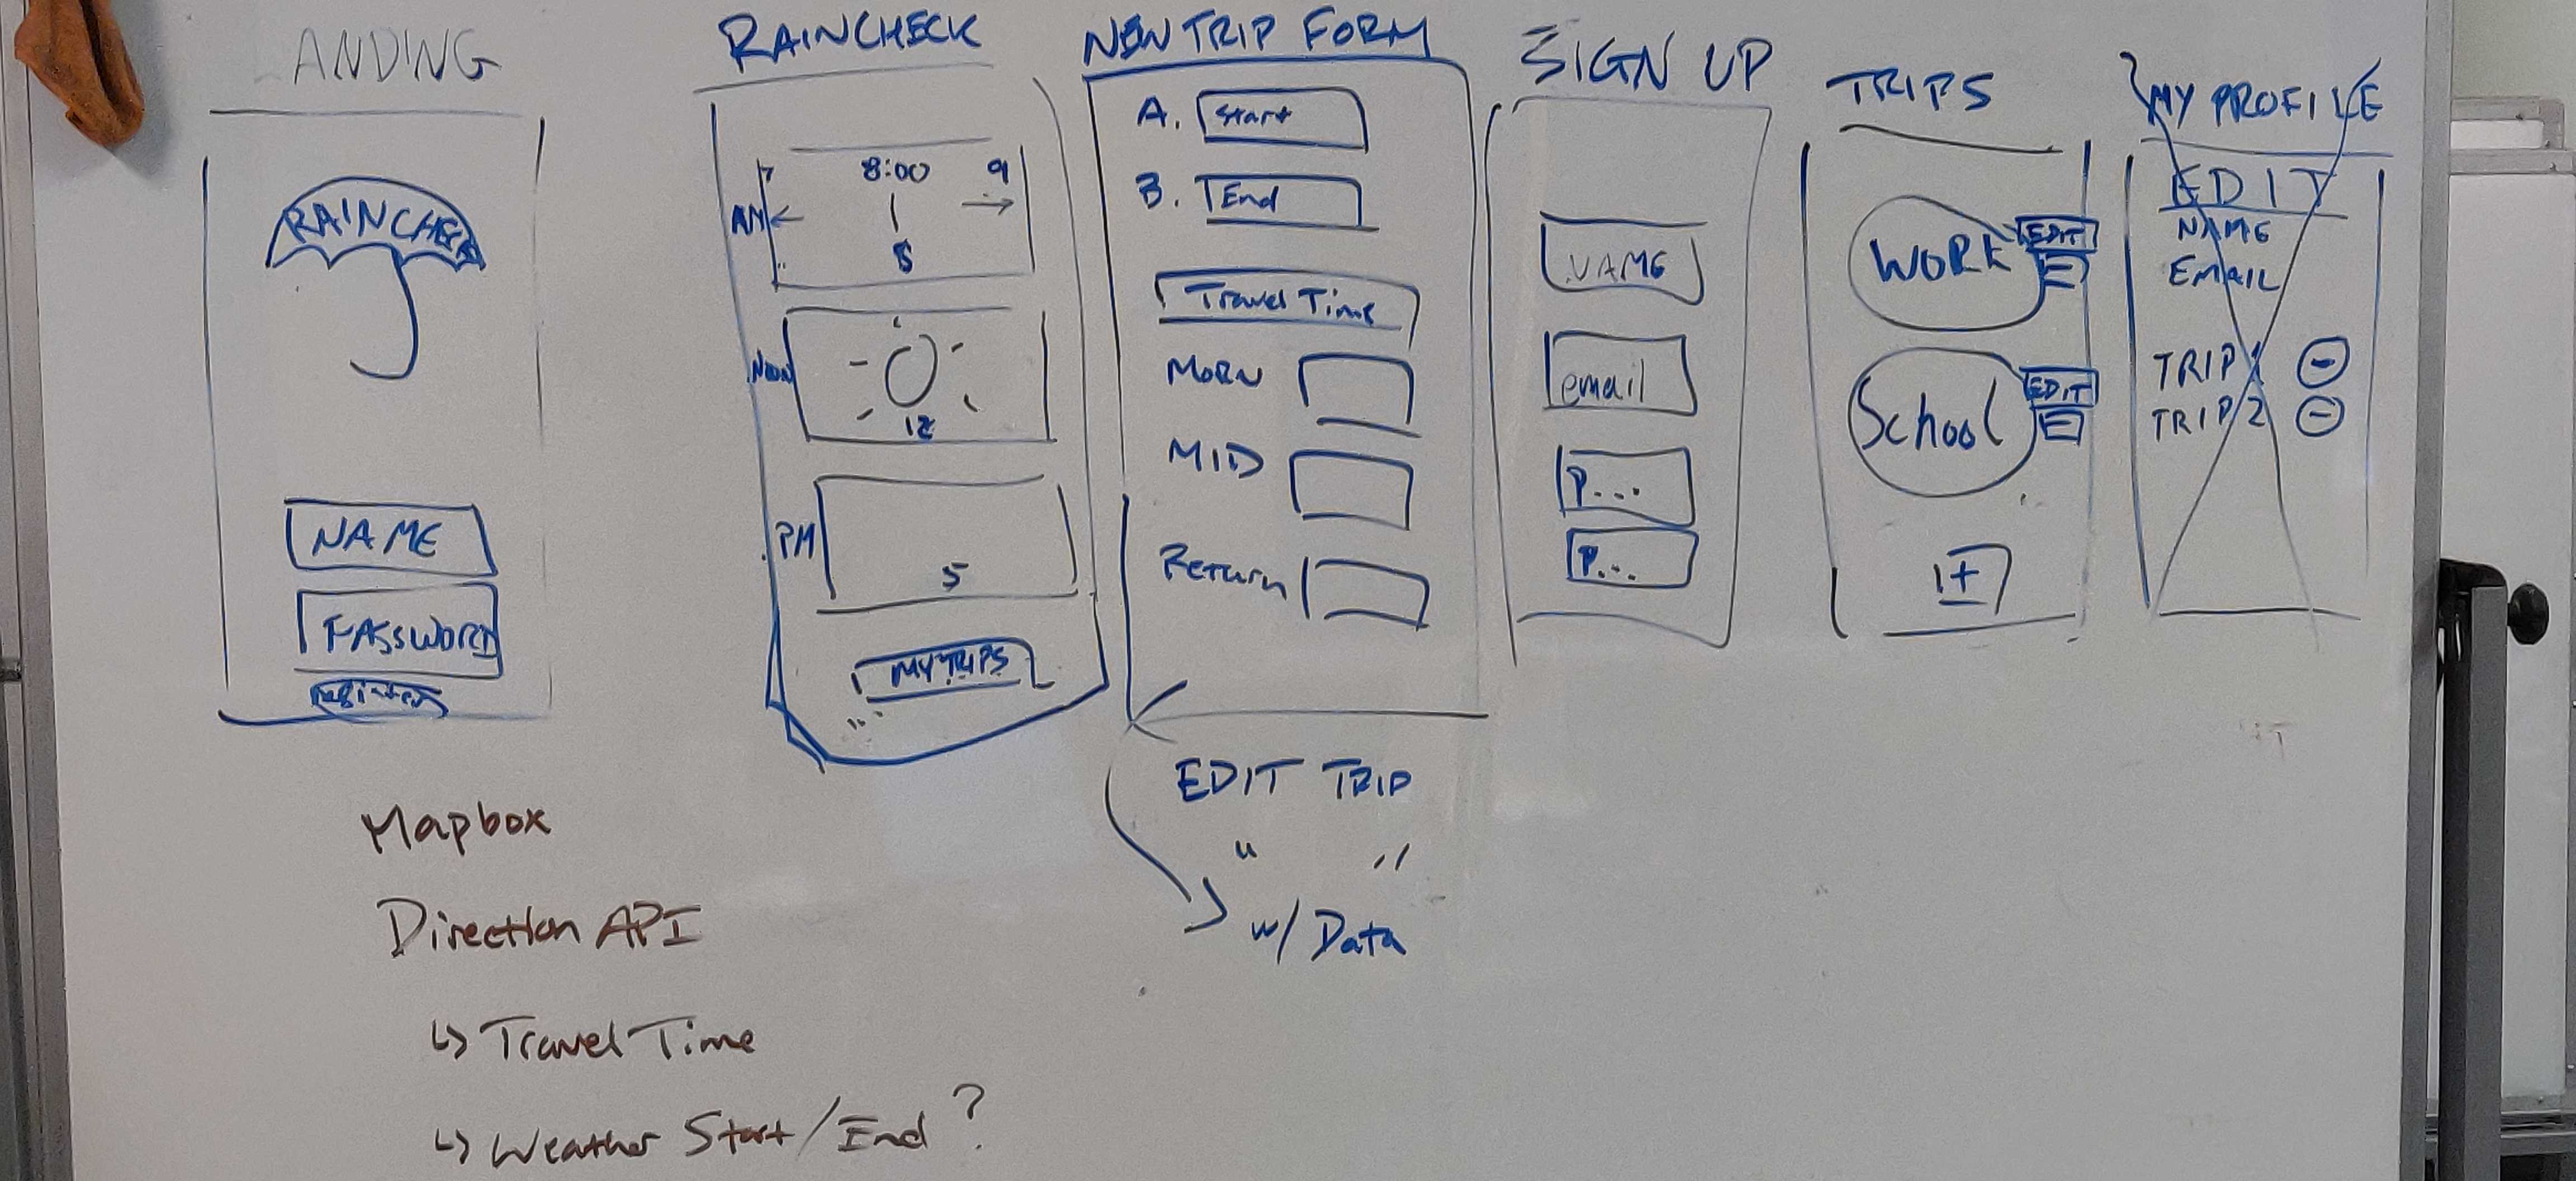 ANDING
RAINCHECK
NAME
PASSWORD
RAINCHECK
7 8:00 9
AM
8
NOON
12
PM
5
MY TRIPS
NEW TRIP FORM
A. Start
B. End
Travel Time
MORN
MID
Return
EDIT TRIP
" "
w/ Data
SIGN UP
NAME
email
P...
P...
TRIPS
WORK
EDIT
School
EDIT
+
MY PROFILE
EDIT
NAME
EMAIL
TRIP 1 -
TRIP 2 -
Mapbox
Direction API
↳ Travel Time
↳ Weather Start/End ?